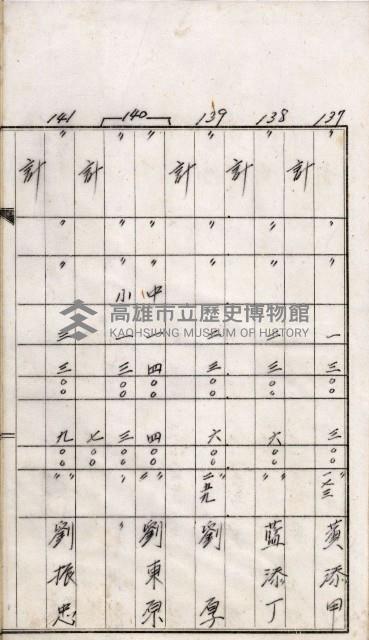 137 〃 〃 〃 一 三〇〇 三〇〇 〃 〃 一七三 黃添甲
計
138 〃 〃 〃 二 三〇〇 六〇〇 〃 〃 藍添丁
計
139 〃 〃 〃 二 三〇〇 六〇〇 〃 二五九 劉厚
計
140 〃 〃 〃 中 一 四〇〇 四〇〇 〃 〃 劉東原
〃 〃 〃 小 一 三〇〇 三〇〇 〃 〃
計 七〇〇
141 〃 〃 〃 三 三〇〇 九〇〇 〃 〃 劉振忠
計
高雄市立歷史博物館
KAOHSIUNG MUSEUM OF HISTORY